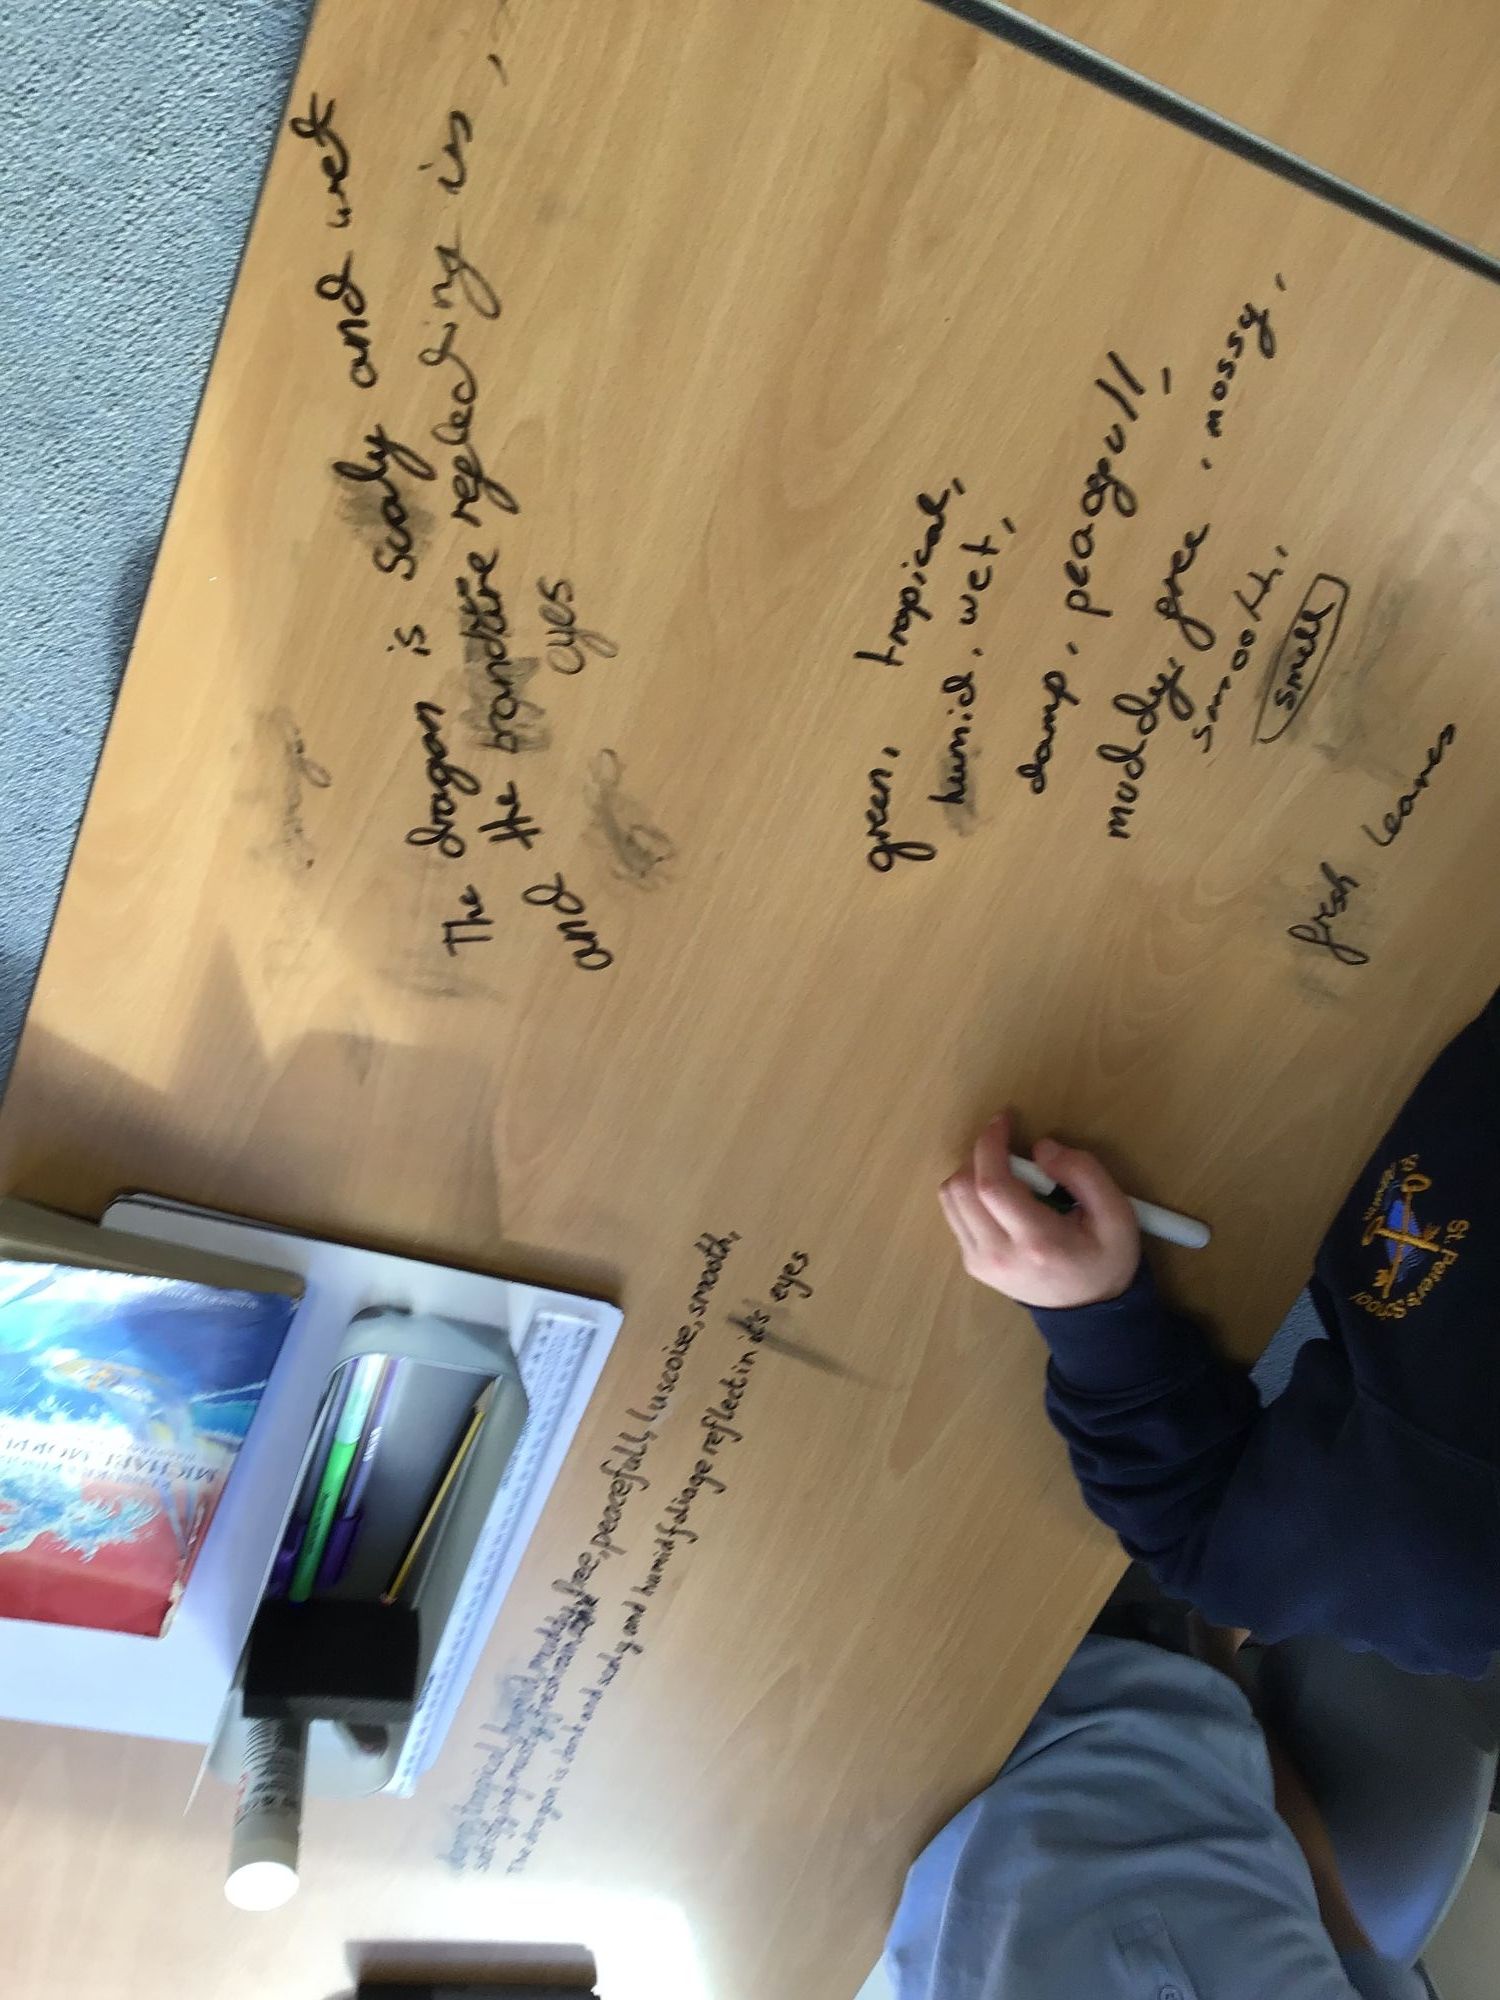 The dragon is scaly and wet
and the bamboo reflecting in
eyes
green, tropical,
humid, wet,
damp, peacgull,
muddy, free, mossy,
smooth,
smell
fresh leaves
tropical, humid, muddy, free, peacefull, luscoise, smooth,
satisfying, mossy, fresh
The dragon is dark and scaly and humid foliage reflect in it's eyes
St. Peter's School
MICHAEL MORP